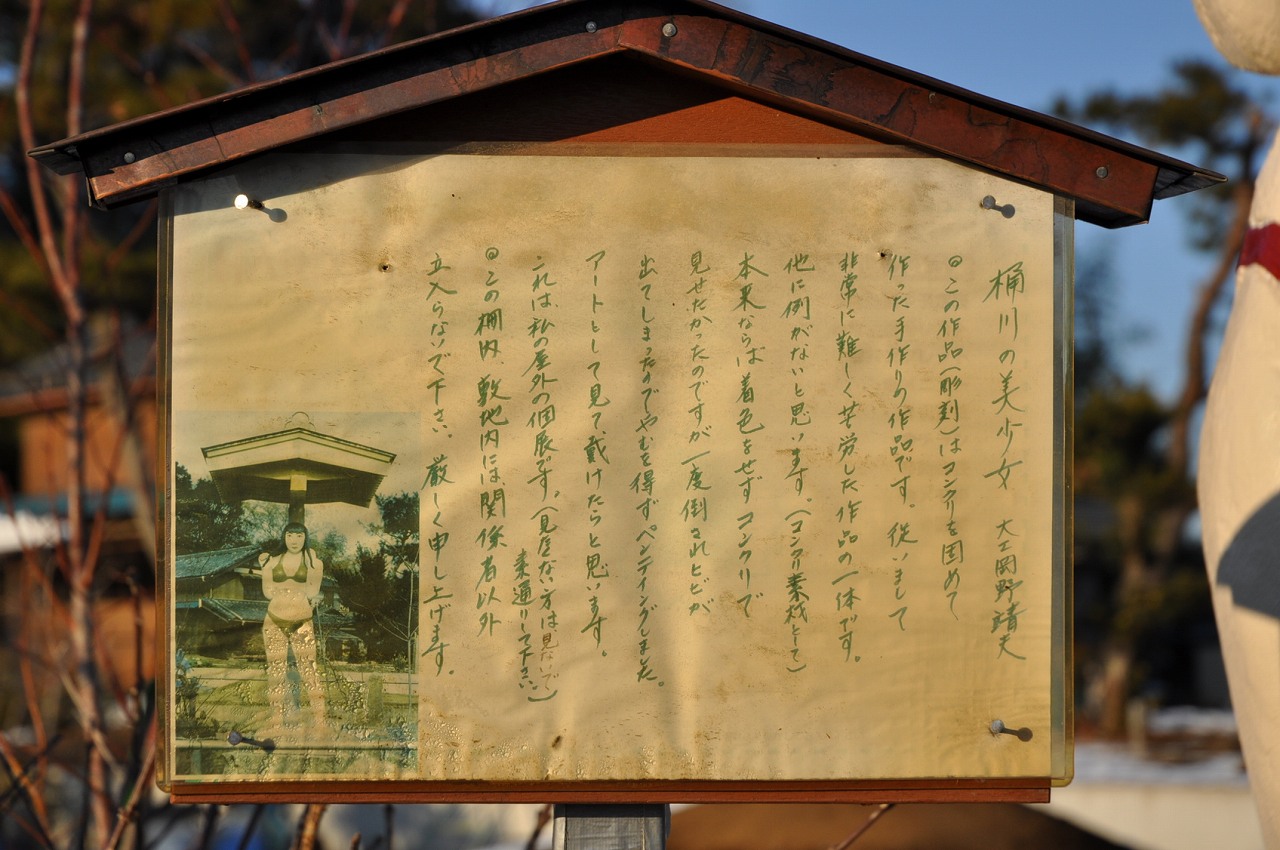 桶川の美少女 大工岡野靖夫
◎この作品(彫刻)はコンクリを固めて
作った手作りの作品です。従いまして
非常に難しく苦労した作品の一体です。
他に例がないと思います。(コンクリ素材として)
本来ならば着色をせずコンクリで
見せたかったのですが一度倒されヒビが
出てしまったのでやむを得ずペンテイングしました。
アートとして見て戴けたらと思います。
これは、私の屋外の個展です。(見たくない方は見ないで
素通りして下さい。)
◎この柵内、敷地内には関係者以外
立入らないで下さい。厳しく申し上げます。